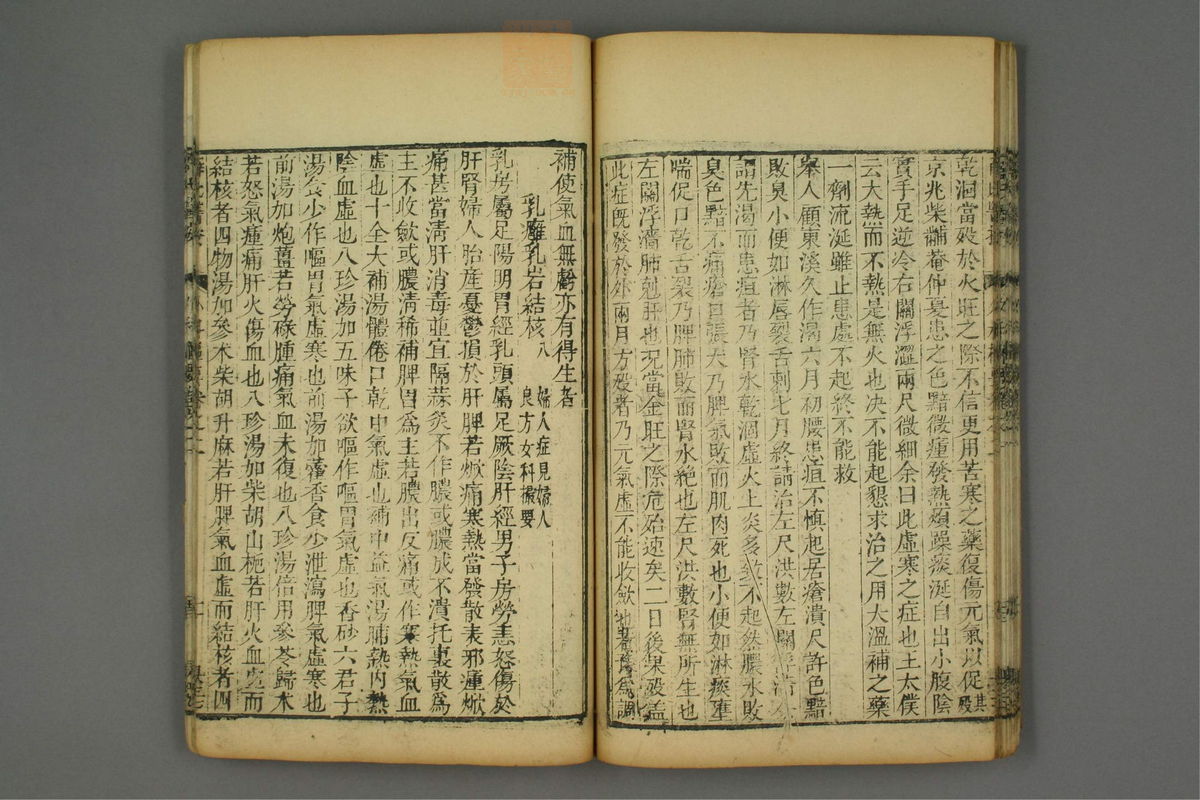 乾涸當歿於火旺之際不信更用苦寒之藥復傷元氣以促其歿
京兆柴黼菴仲夏患之色黯微瘇發熱煩躁痰涎自出小腹陰
實手足逆冷右關浮澀兩尺微細余曰此虛寒之症也王太僕
云大熱而不熱是無火也决不能起懇求治之用大溫補之藥
一劑流涎雖止患處不起終不能救
舉人顧東溪久作渴六月初腰患疽不慎起居瘡潰尺許色黯
敗臭小便如淋唇裂舌刺七月終請治左尺洪數左關浮濇
謂先渴而患疽者乃腎水乾涸虛火上炎多致不起然膿水敗
臭色黯不痛瘡口張大乃脾氣敗而肌肉死也小便如淋痰壅
喘促口乾舌裂乃脾肺敗而腎水絶也左尺洪數腎無所生也
左關浮濇肺尅肝也况當金旺之際危殆速矣二日後果歿蓋
此症既發於外兩月方歿者乃元氣虛不能收斂也若預爲調
補使氣血無虧亦有得生者
乳癰乳岩結核八 婦人症見婦人良方女科撮要
乳房屬足陽明胃經乳頭屬足厥陰肝經男子房勞恚怒傷於
肝腎婦人胎産憂鬱損於肝脾若焮痛寒熱當發散表邪瘇焮
痛甚當清肝消毒並宜隔蒜灸不作膿或膿成不潰托裏散爲
主不收斂或膿清稀補脾胃爲主若膿出反痛或作寒熱氣血
虛也十全大補湯體倦口乾中氣虛也補中益氣湯晡熱內熱
陰血虛也八珍湯加五味子欲嘔作嘔胃氣虛也香砂六君子
湯食少作嘔胃氣虛寒也前湯加藿香食少泄瀉脾氣虛寒也
前湯加炮薑若勞碌腫痛氣血未復也八珍湯倍用參芪歸术
若怒氣瘇痛肝火傷血也八珍湯加柴胡山梔若肝火血虛而
結核者四物湯加參术柴胡升麻若肝脾氣血虛而結核者四